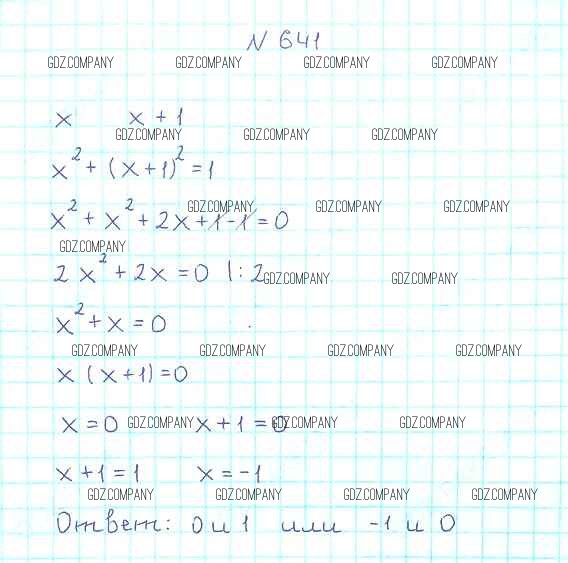 N 641
GDZ.COMPANY GDZ.COMPANY GDZ.COMPANY GDZ.COMPANY
x x + 1
GDZ.COMPANY GDZ.COMPANY GDZ.COMPANY
x² + (x+1)² = 1
GDZ.COMPANY GDZ.COMPANY GDZ.COMPANY
x² + x² + 2x + 1 - 1 = 0
GDZ.COMPANY
2x² + 2x = 0 |: 2
GDZ.COMPANY GDZ.COMPANY
x² + x = 0
GDZ.COMPANY GDZ.COMPANY GDZ.COMPANY GDZ.COMPANY
x (x+1) = 0
x = 0 x + 1 = 0
GDZ.COMPANY GDZ.COMPANY GDZ.COMPANY
x + 1 = 1 x = -1
GDZ.COMPANY GDZ.COMPANY GDZ.COMPANY GDZ.COMPANY
Ответ: 0 и 1 или -1 и 0